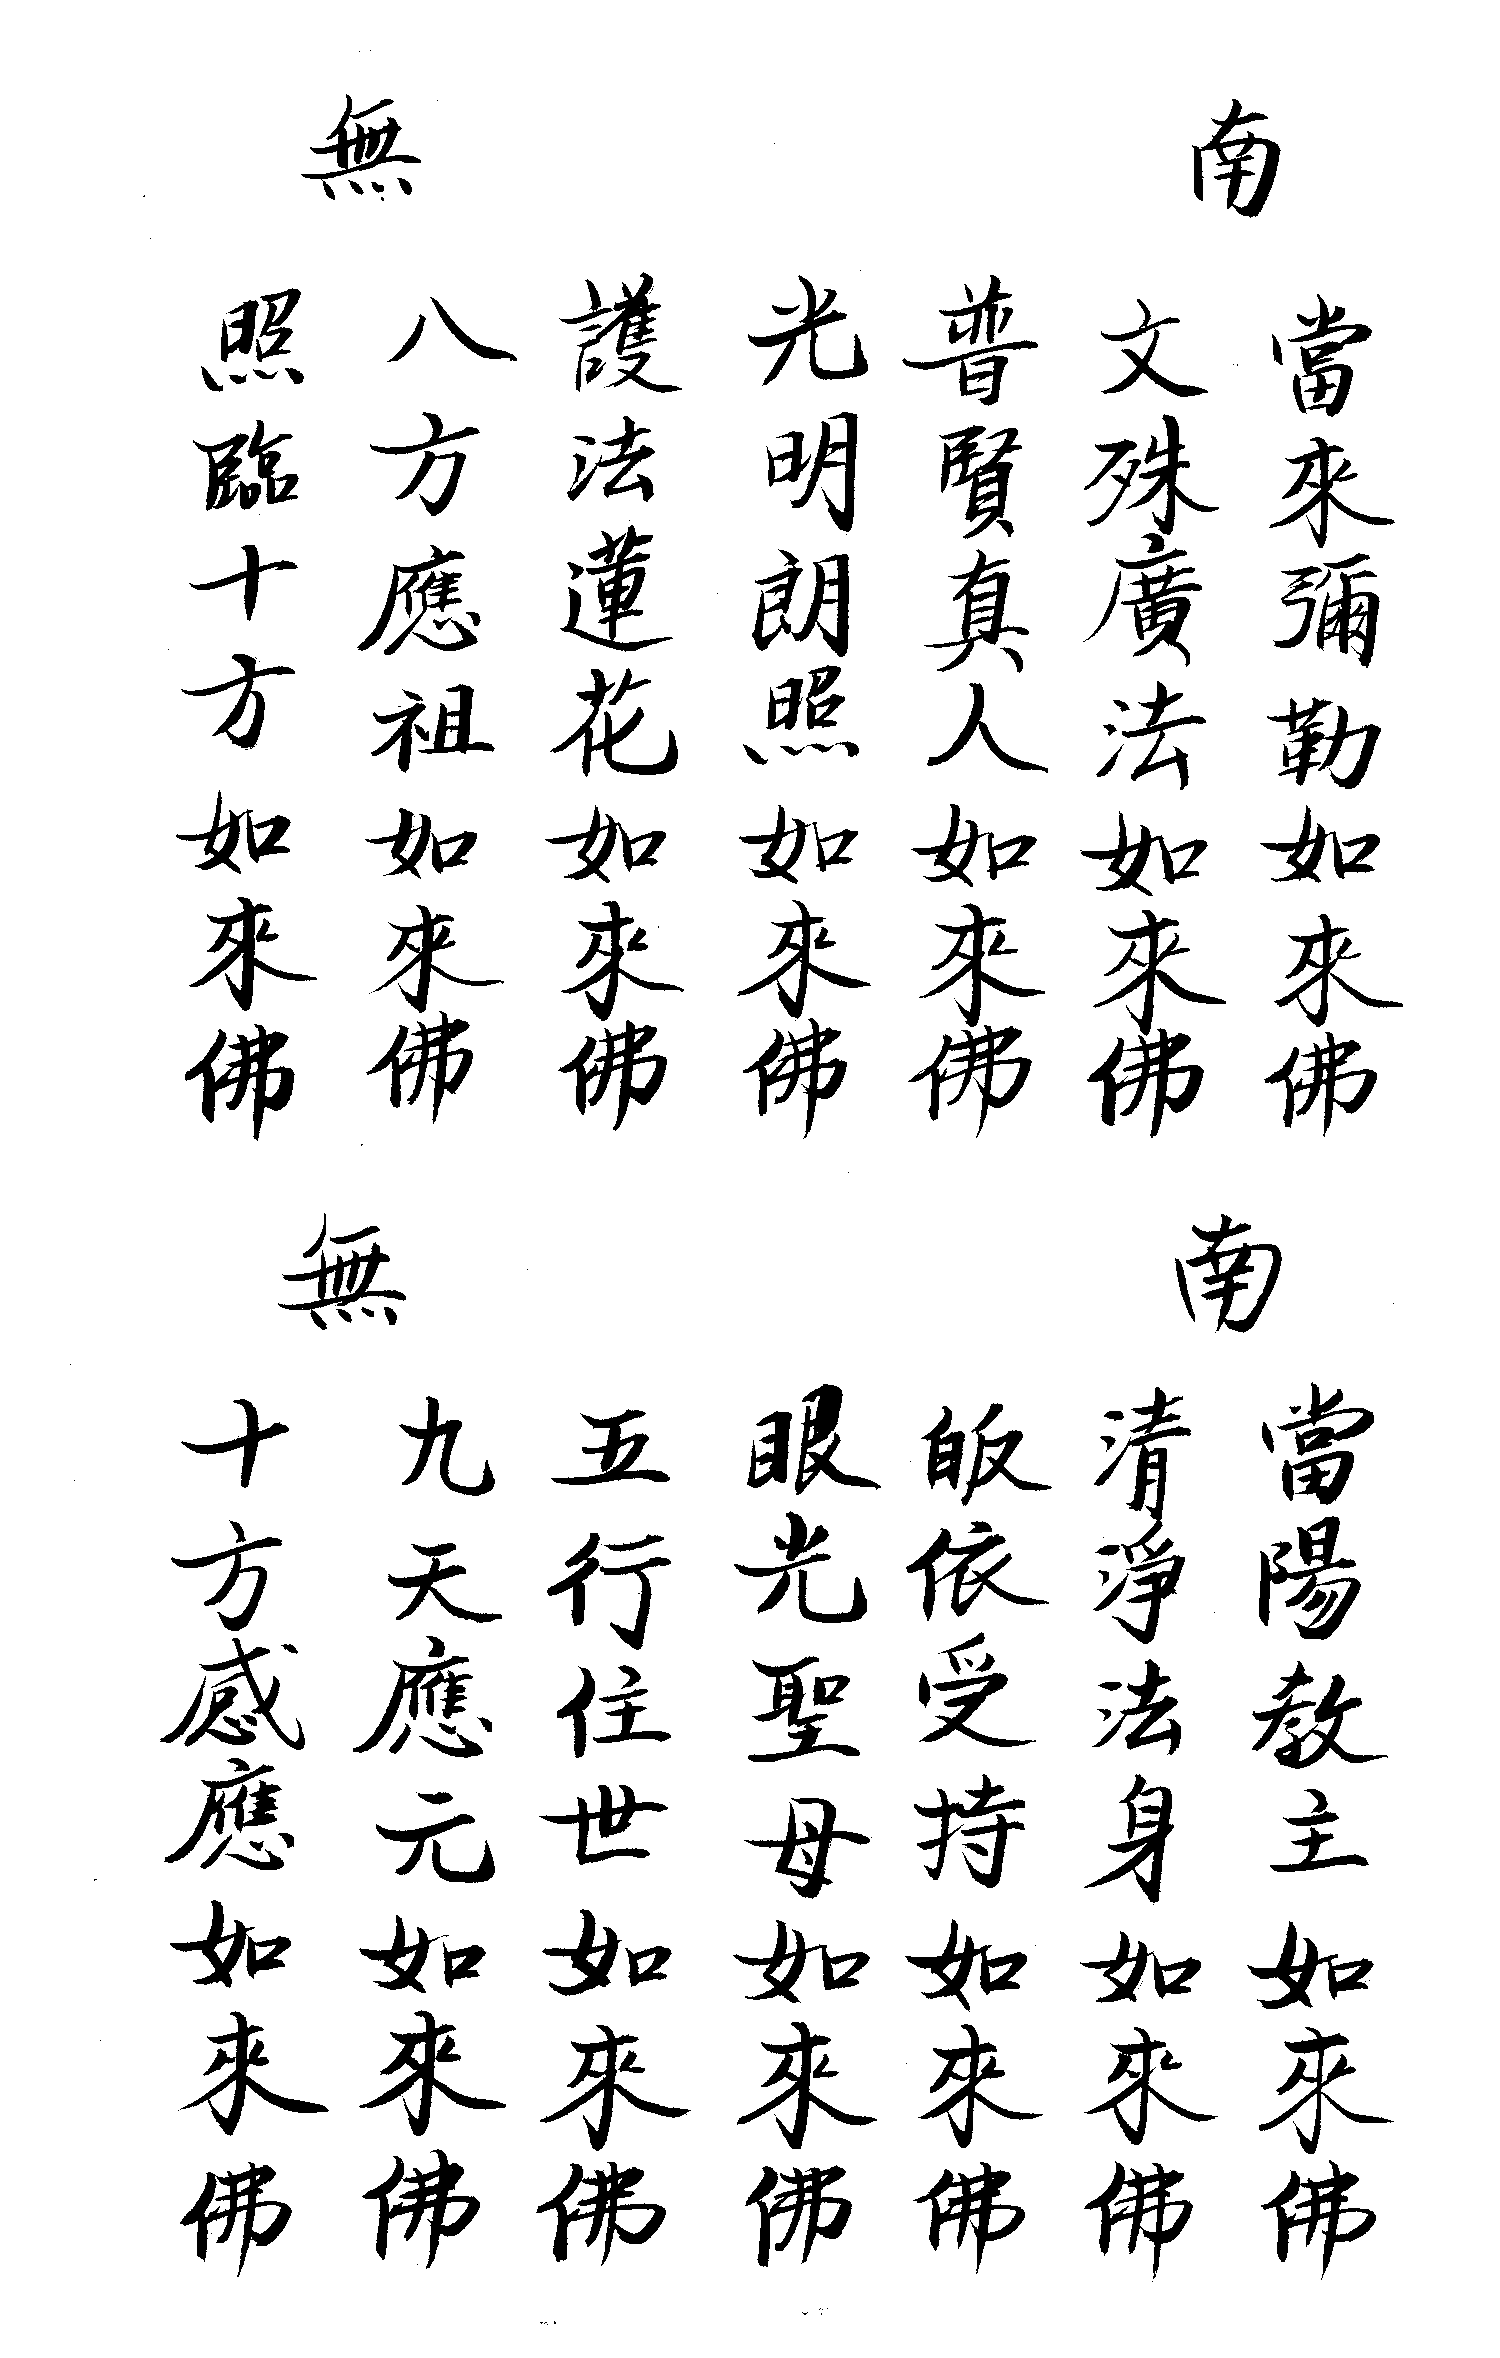 南無
當來彌勒如來佛
文殊廣法如來佛
普賢真人如來佛
光明朗照如來佛
護法蓮花如來佛
八方應祖如來佛
照臨十方如來佛
南無
當陽教主如來佛
清淨法身如來佛
皈依受持如來佛
眼光聖母如來佛
五行住世如來佛
九天應元如來佛
十方感應如來佛